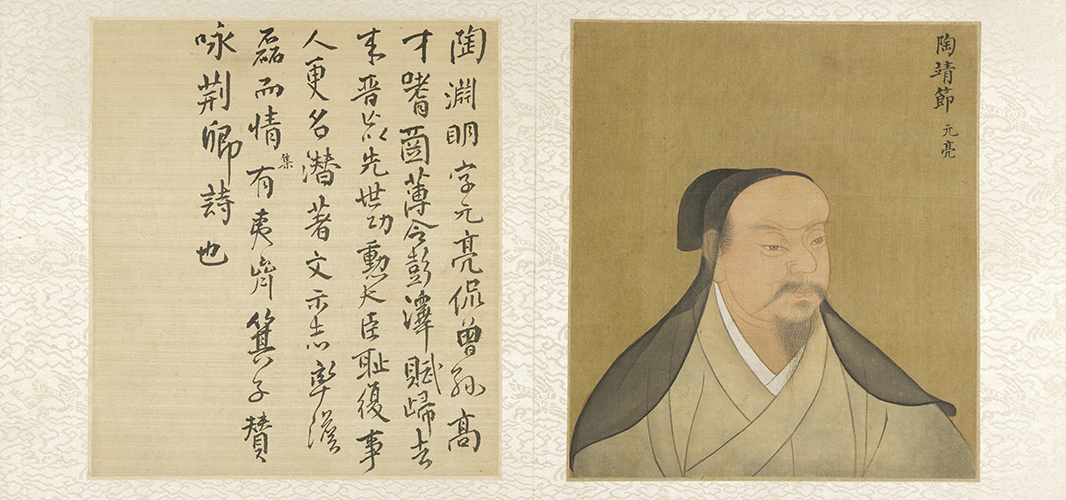 陶靖節 元亮
陶淵明字元亮侃曾孫高
才嗜薄令彭澤賦歸去
来晉以先世功勳大臣恥復事
人更名潛著文示志
磊而情集有夷齊箕子贊
咏荊卿詩也